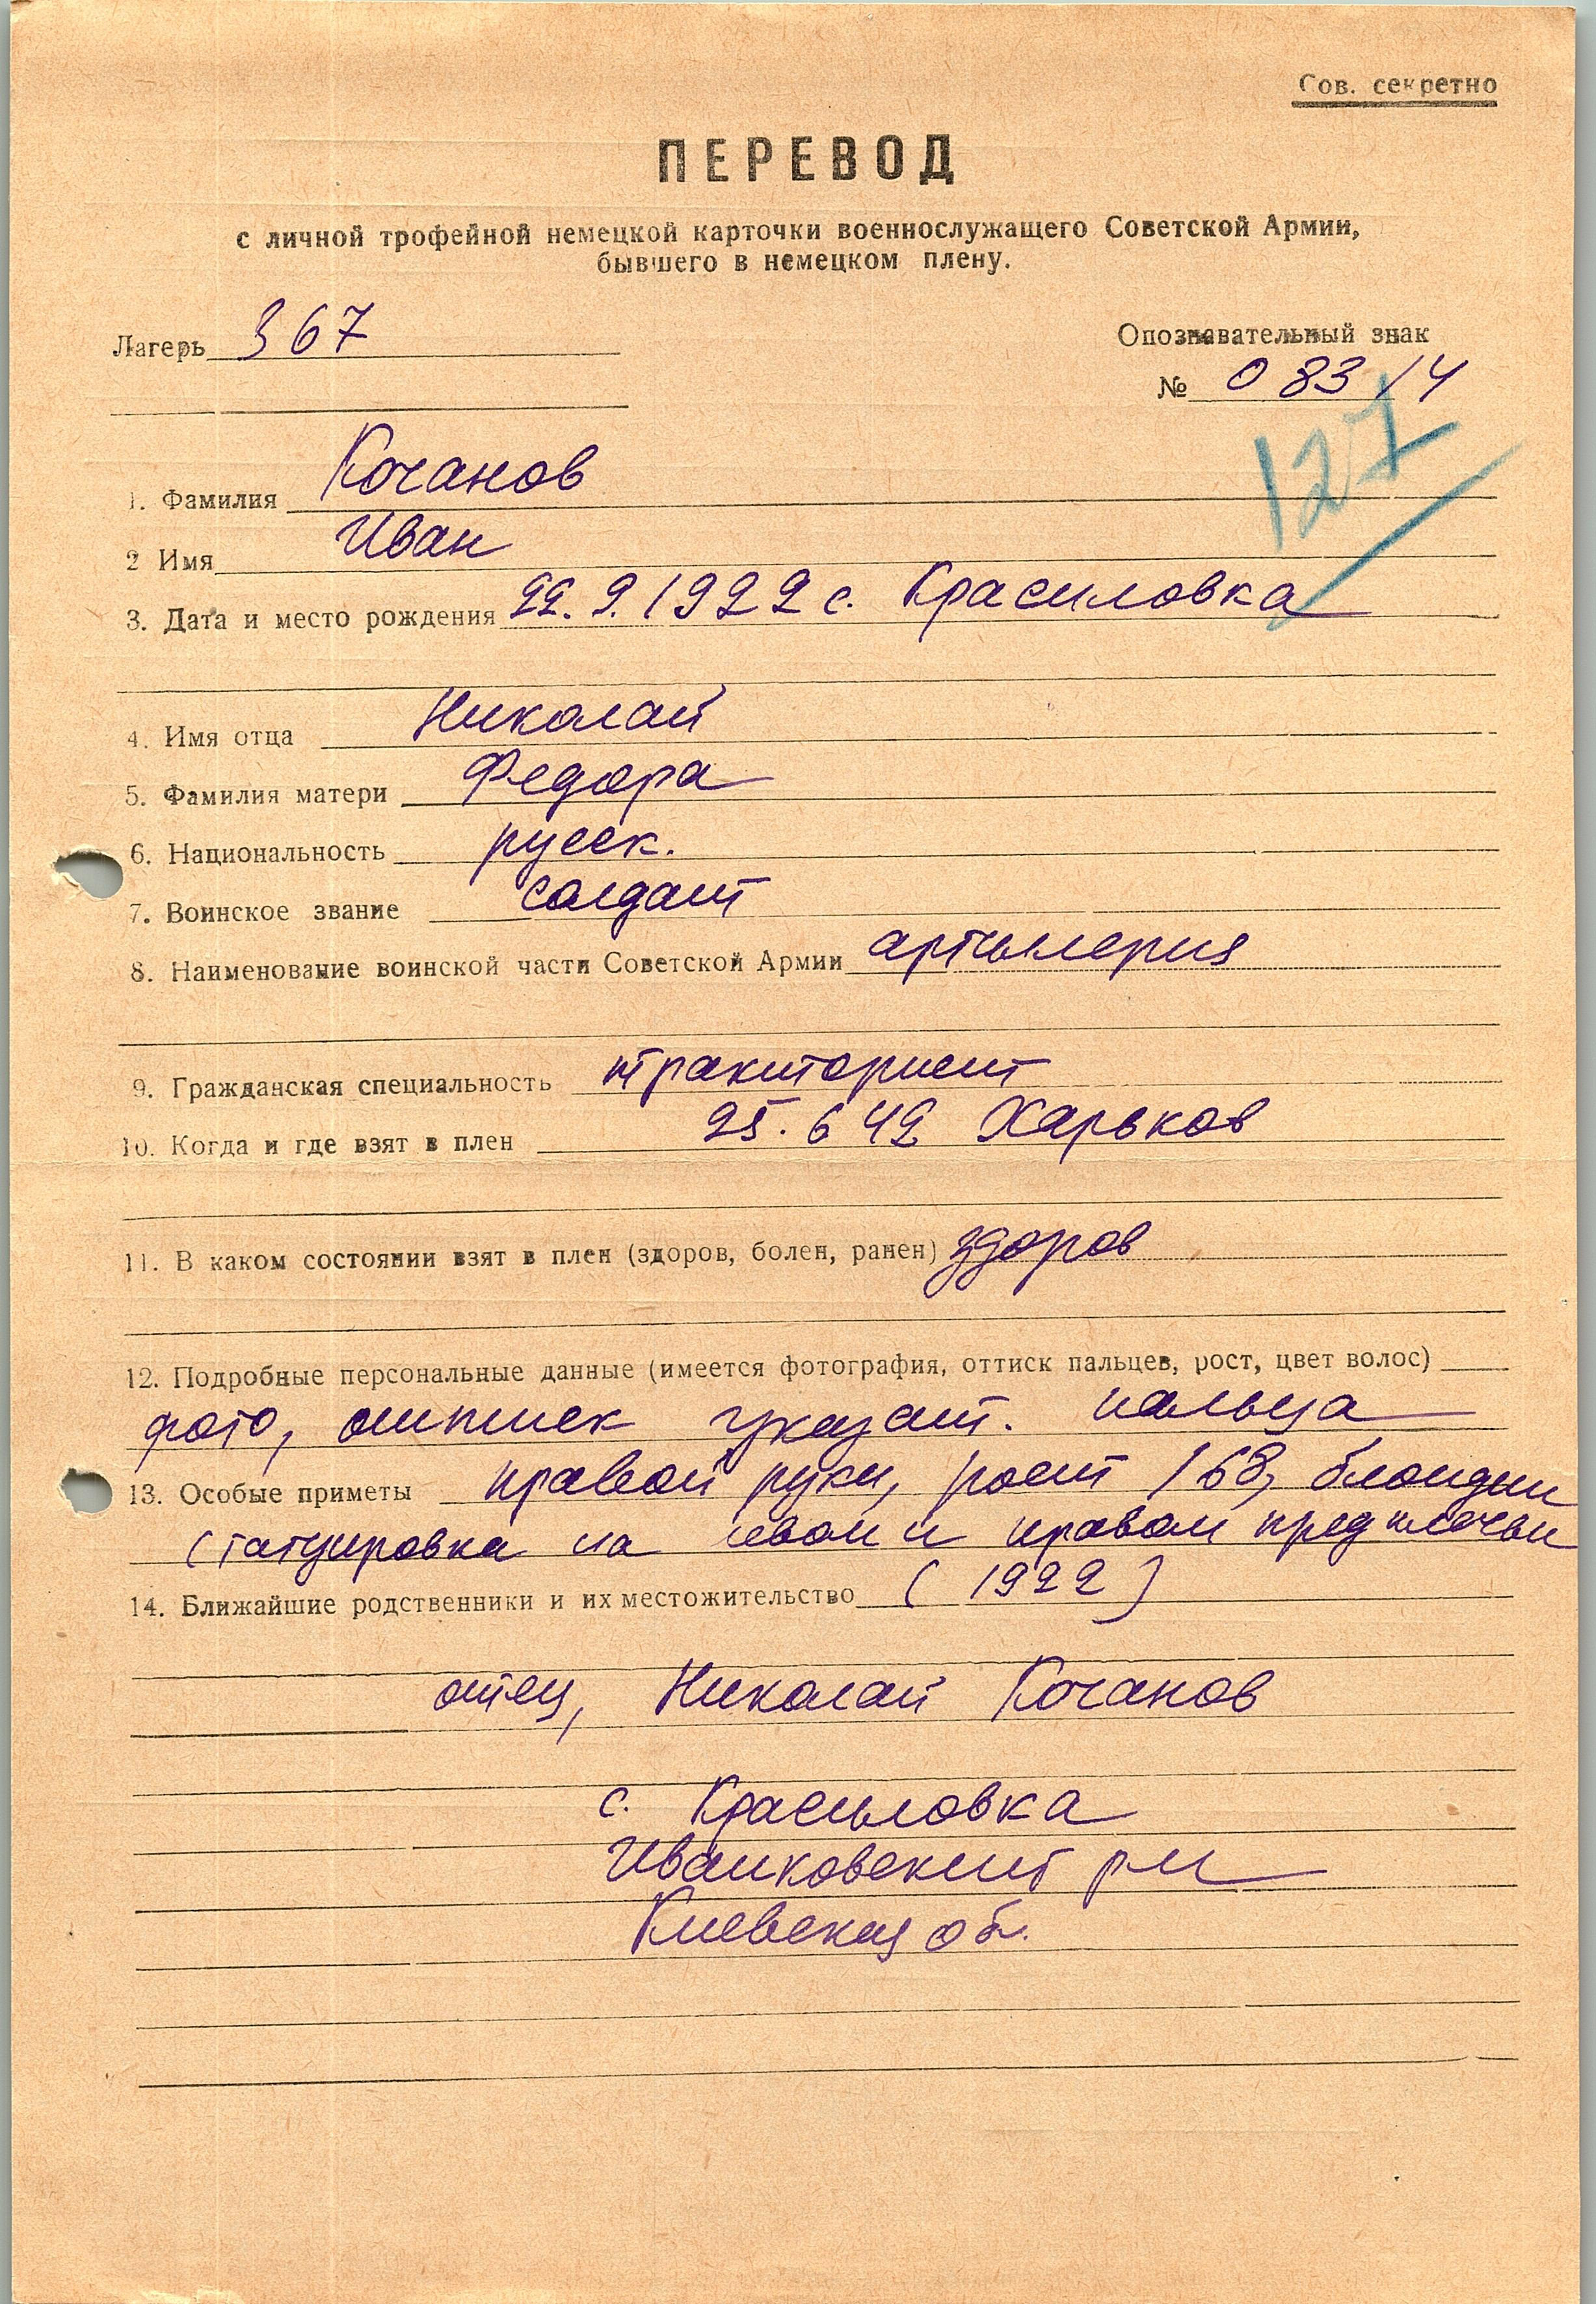 Сов. секретно
ПЕРЕВОД
с личной трофейной немецкой карточки военнослужащего Советской Армии,
бывшего в немецком плену.
Лагерь 367
Опознавательный знак
№ 083/4
127
1. Фамилия Кочанов
2 Имя Иван
3. Дата и место рождения 22.9.1922 с. Красиловка
4. Имя отца Николай
5. Фамилия матери Федора
6. Национальность русск.
7. Воинское звание солдат
8. Наименование воинской части Советской Армии артилерия
9. Гражданская специальность тракторист
10. Когда и где взят в плен 25.6 42 Харьков
11. В каком состоянии взят в плен (здоров, болен, ранен) здоров
12. Подробные персональные данные (имеется фотография, оттиск пальцев, рост, цвет волос)
фото, оттиск указат. пальца
13. Особые приметы правой руки, рост 168, блондин
(татуировка на левом и правом предплечьи
14. Ближайшие родственники и их местожительство (1922)
отец, Николай Кочанов
с. Красиловка
Иванковский рн
Киевская об.